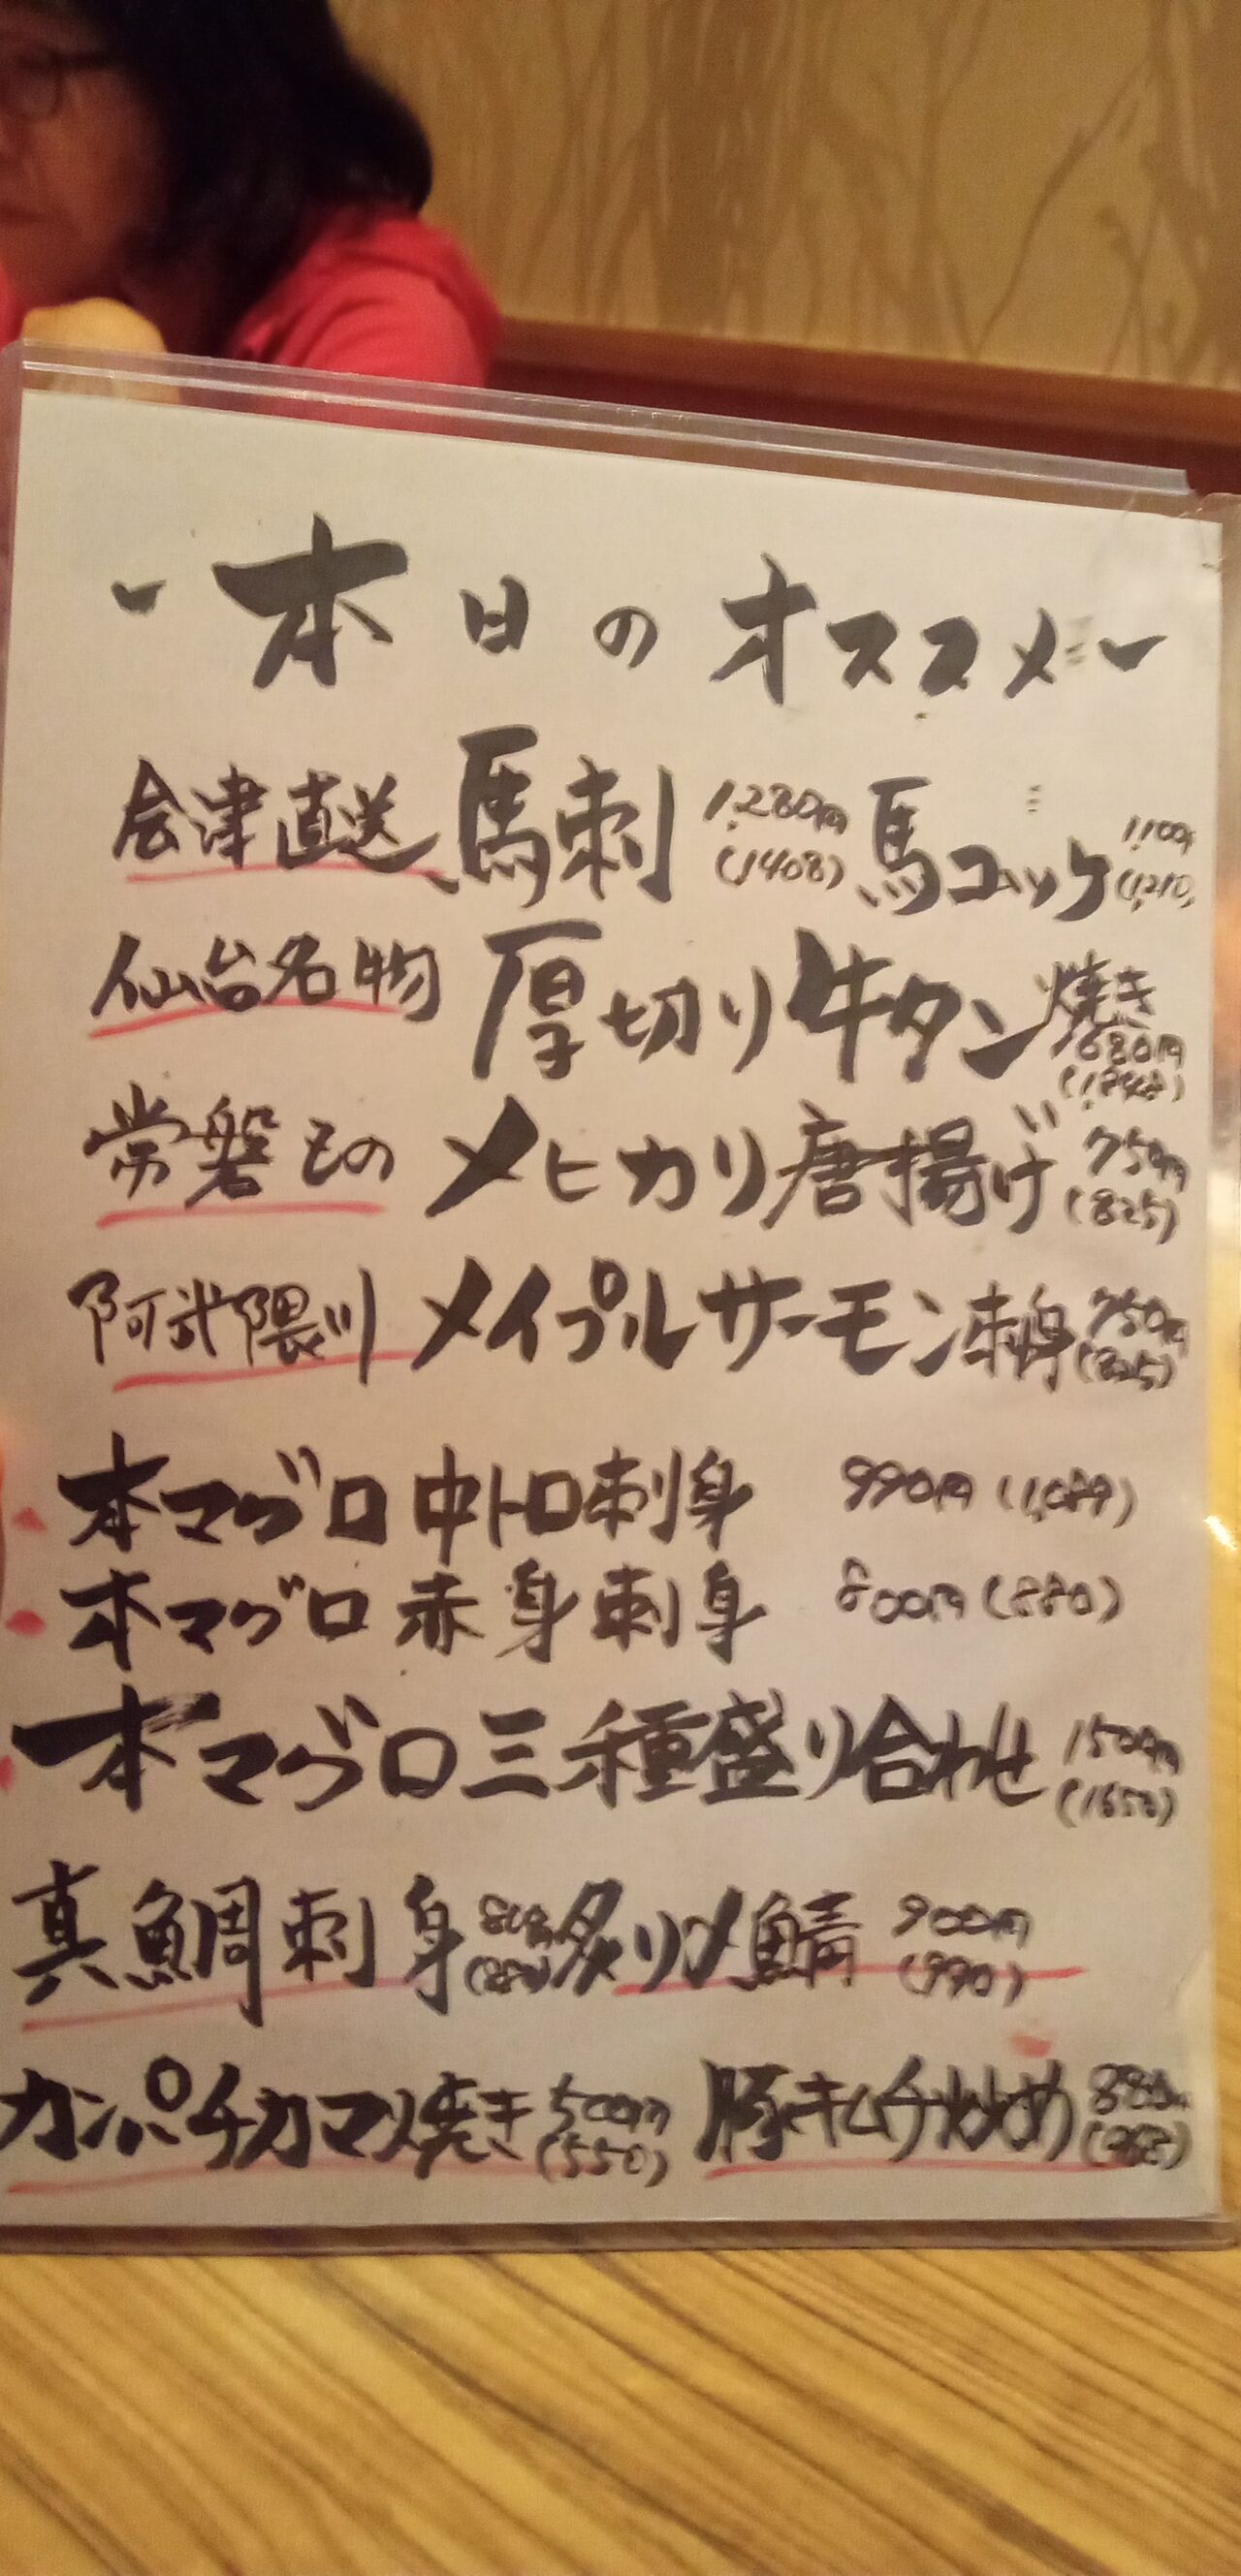 -本日のオススメ-
会津直送 馬刺 1,280円 (1408) 馬ユッケ 1,100円 (1,210)
仙台名物 厚切り牛タン焼き 1,680円 (1,848)
常磐もの メヒカリ唐揚げ 750円 (825)
阿武隈川 メイプルサーモン刺身 750円 (825)
本マグロ 中トロ刺身 990円 (1,089)
本マグロ 赤身刺身 800円 (880)
本マグロ三種盛り合わせ 1500円 (1650)
真鯛刺身 炙り〆鯖 900円 (990)
カンパチカマ焼き 500円 (550) 豚キムチ炒め 880円 (968)